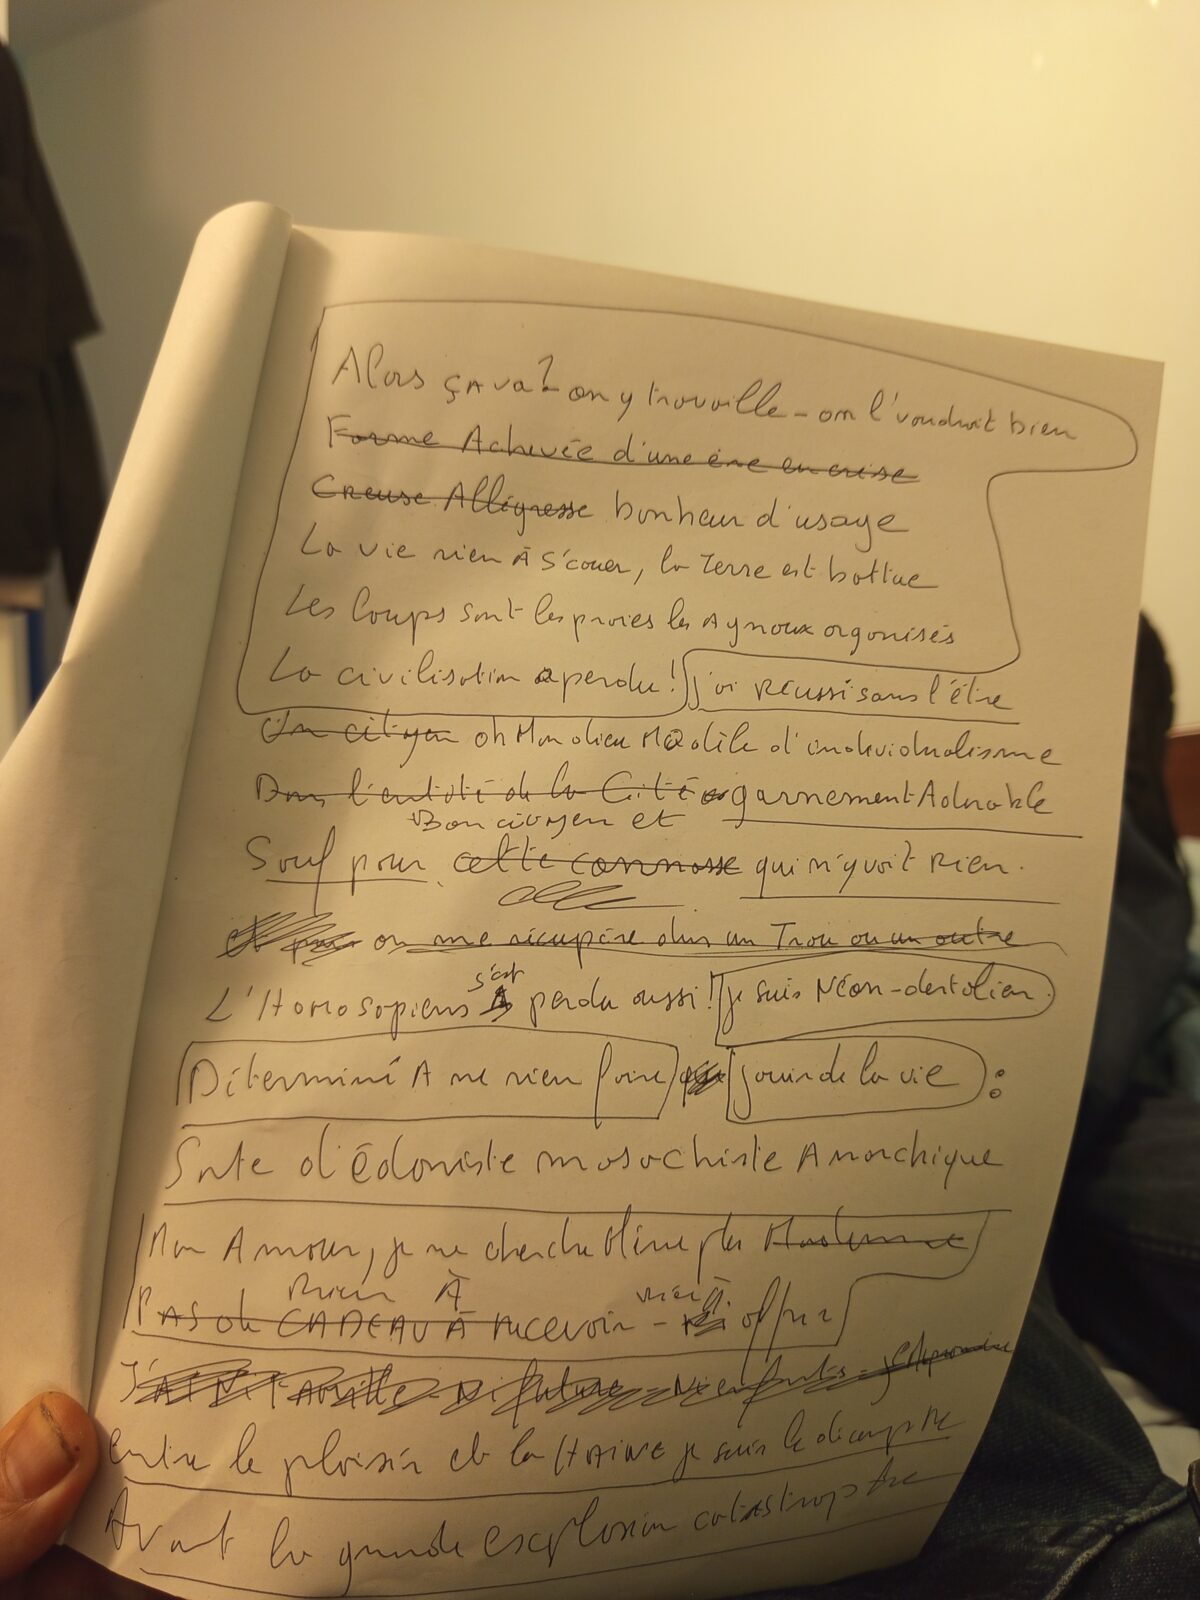 Alors çA va? on y travaille - on l'voudrait bien
Forme Achevée d'une ère en crise
Creuse Allégresse bonheur d'usage
La vie rien A s'couer, la Terre est battue
Les loups sont les proies les Agneaux organisés
La civilisation a perdu! j'ai RÉUSSI sans l'être
Un citoyen oh Mon dieu Modèle d'individualisme
Dans l'entité de la Cité garnement Adorable
Bon citoyen et
Sauf pour cette connasse qui n'y voit Rien.
on me récupère dans un Trou ou un autre
s'est
L'Homo sapiens perdu aussi! je suis Néon-dertalien
Déterminé A ne rien faire jouir de la vie :
Sorte d'édoniste masochiste Anarchique
Mon Amour, je ne cherche même plus
Rien À rien à
PAS de CADEAU À recevoir - offrir
J'AI Ni FAmille - Ni future - Ni enfants -
Entre le plaisir et la HAINE je suis le décompte
Avant la grande explosion catastrophe